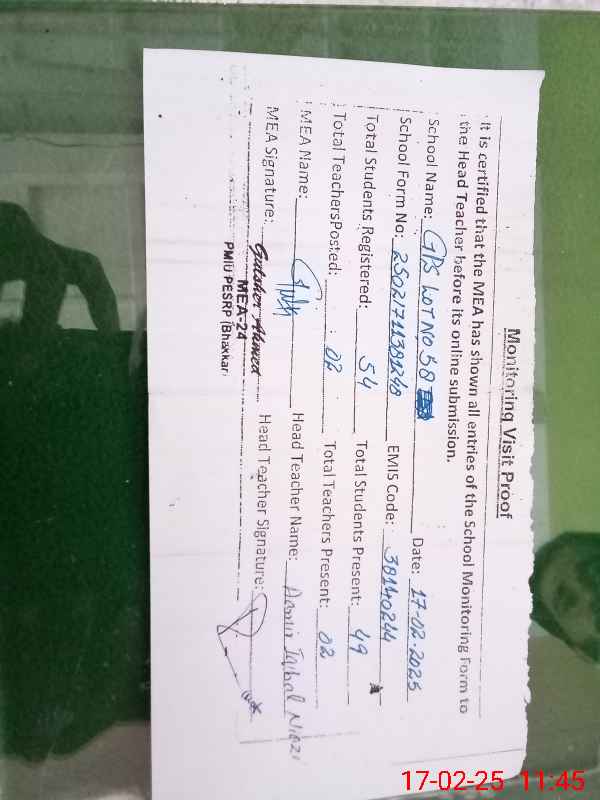 Monitoring Visit Proof
It is certified that the MEA has shown all entries of the School Monitoring Form to
the Head Teacher before its online submission.
School Name: GPS LOT NO 58 Date: 17-02-2025
School Form No: EMIS Code: 38140244
Total Students Registered: 54 Total Students Present: 49
Total TeachersPosted: 02 Total Teachers Present: 02
MEA Name: Head Teacher Name: Aamir Iqbal Niazi
MEA Signature: Gulsher Ahmed Head Teacher Signature:
MEA-24
PMIU PESRP (Bhakkar)
17-02-25 11:45